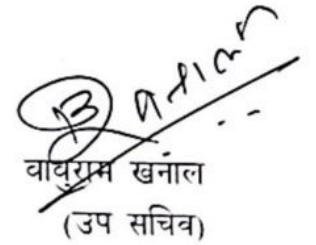 वाबुराम खनाल
(उप सचिव)